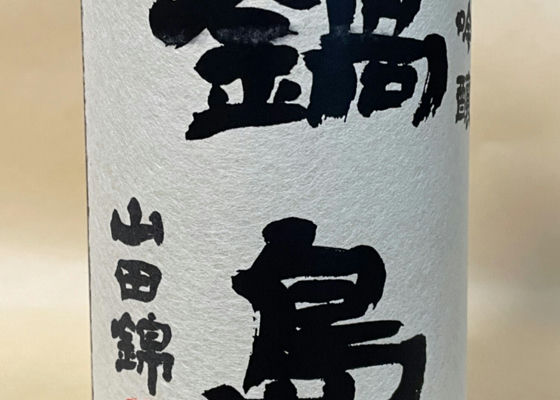 吟醸
鍋島
山田錦